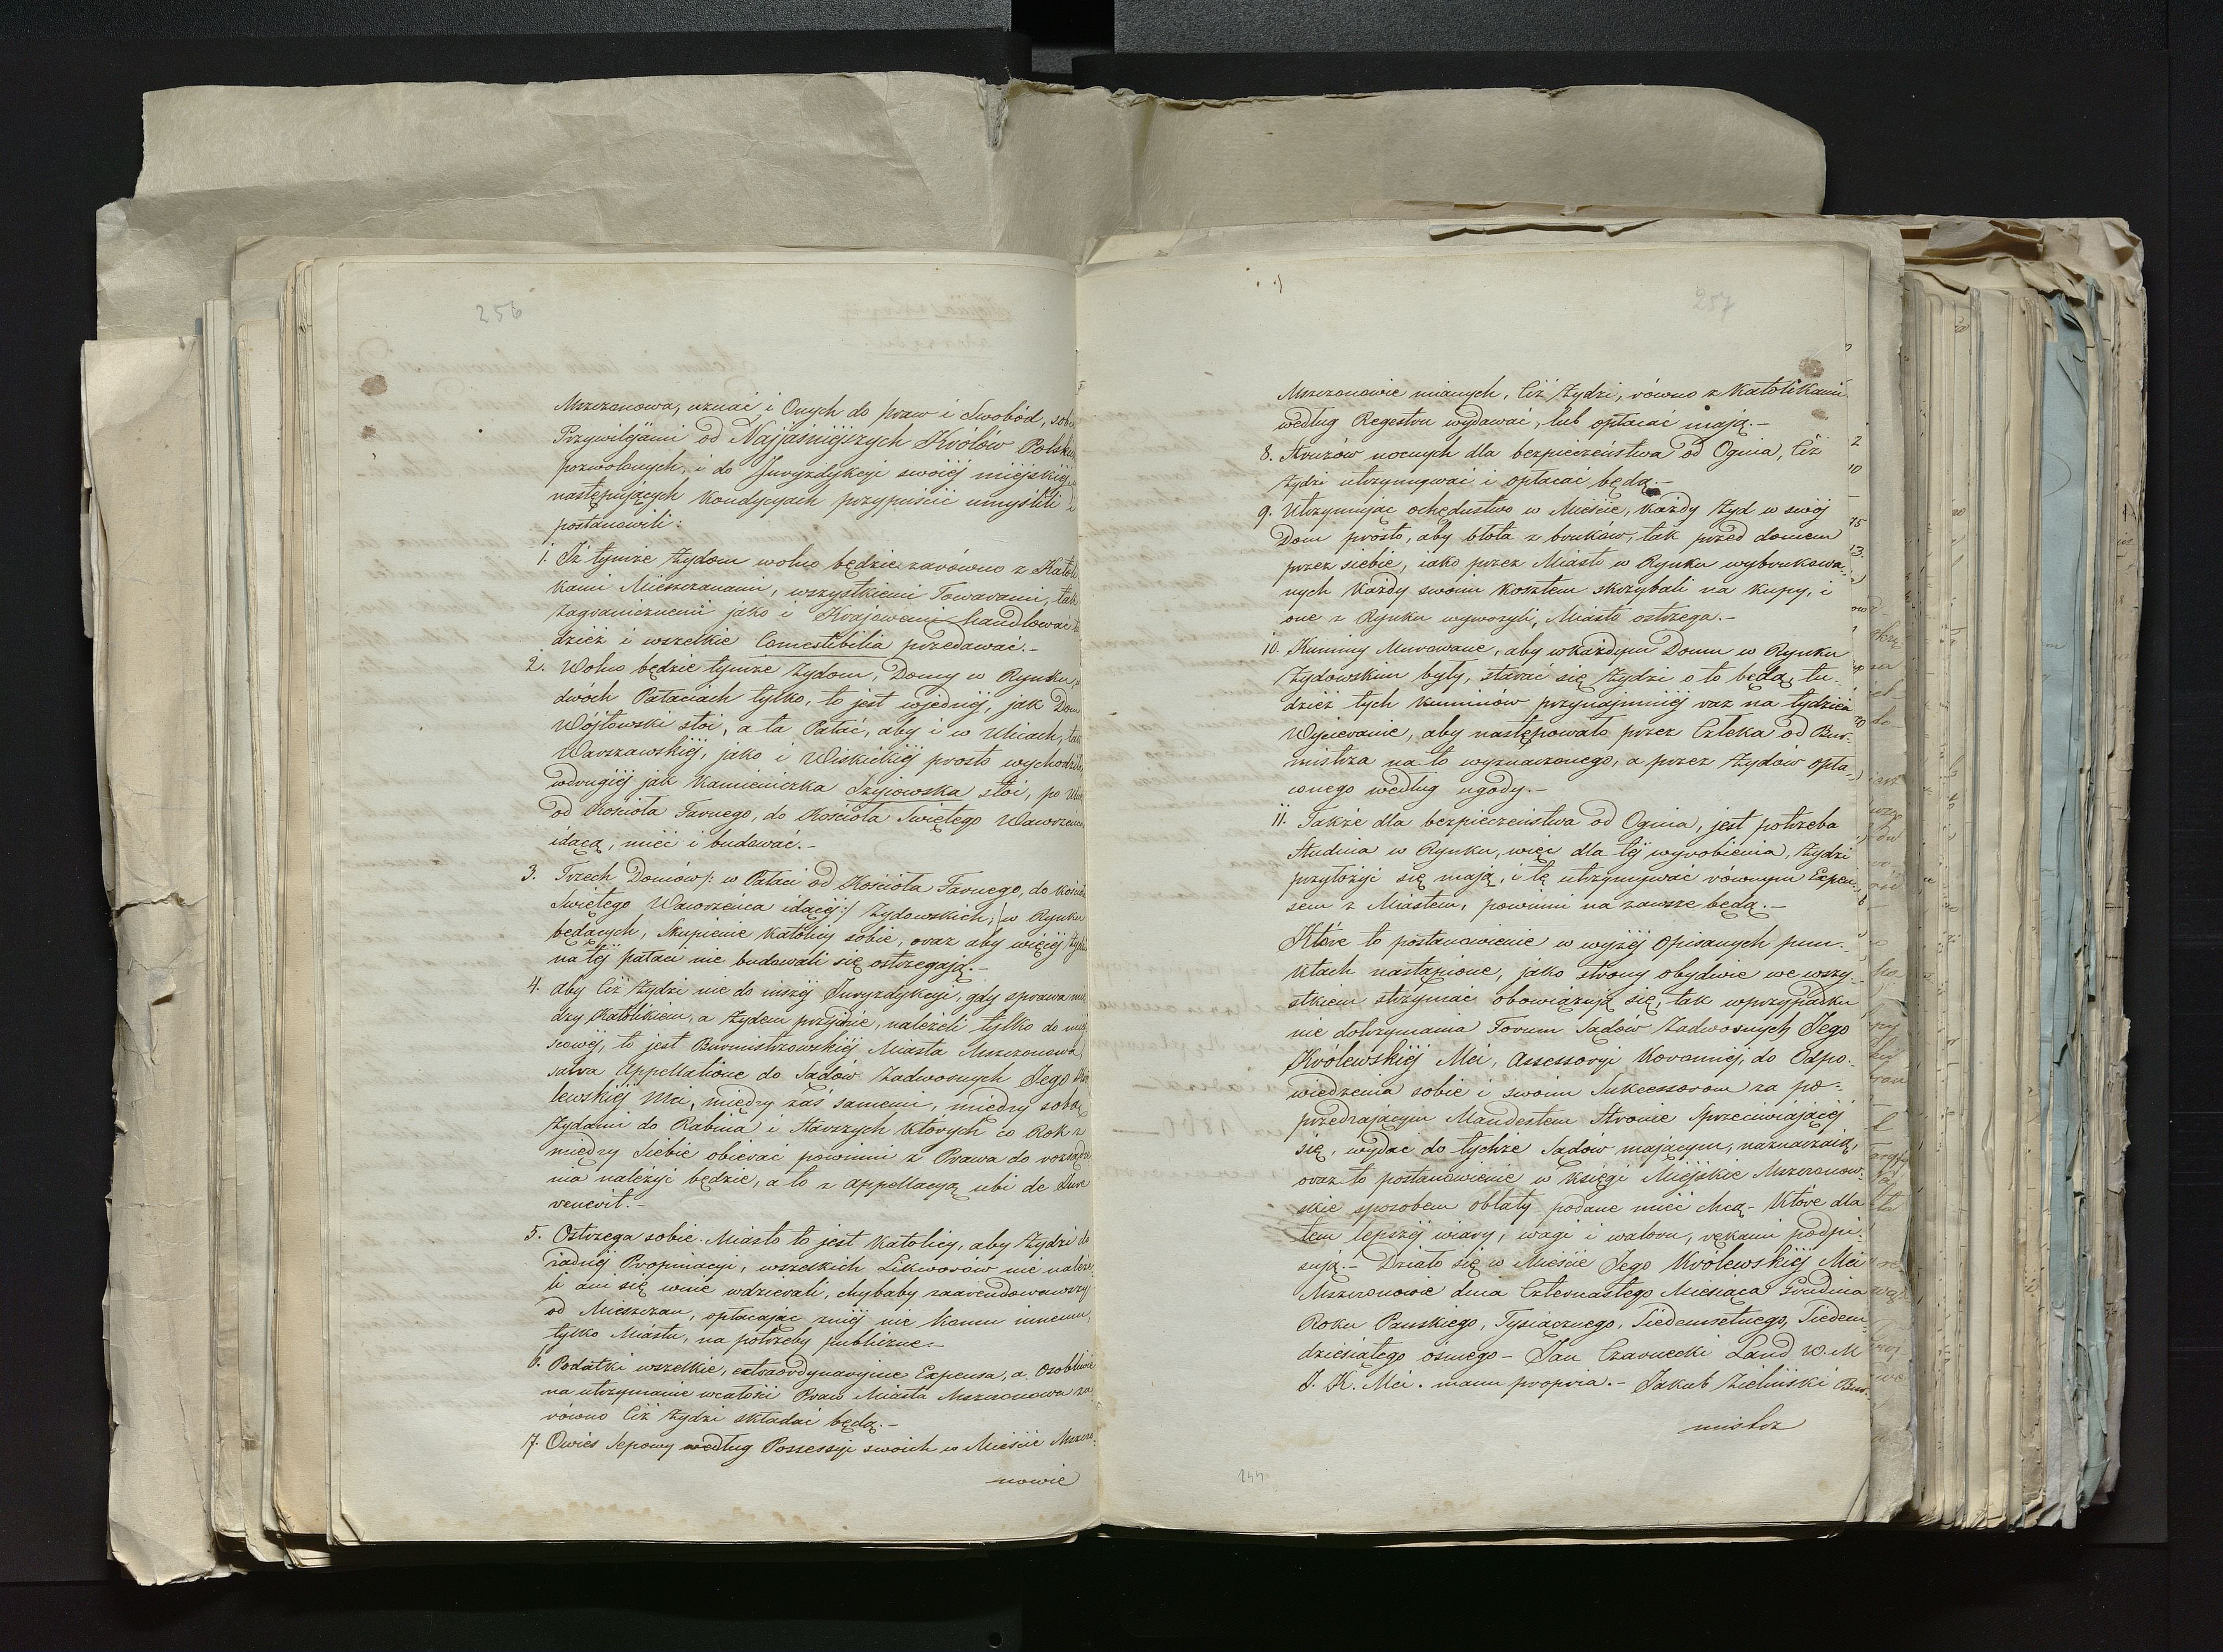 256
Mszczonowa, uznać i Onych do praw i Swobód, sobie
Przywilejami od Najjaśniejszych Królów Polskich
pozwolonych, i do Juryzdykcyi swoiéj miéjskiéj
następujących kondycyach przypuścić umyślili i
postanowili:
1. Iż tymże Żydom wolno będzie zarówno z Katoli
kami Mieszczanami, wszystkiemi Towarami, tak
zagranicznemi jako i Krajowemi handlować tu
dzież i wszelkie Comestibilia przedawać.-
2. Wolno będzie tymże Żydom, Domy w Rynku,
dwóch Pałaciach tylko, to jest wjednéj, jak Dom
Wójtowski stoi, a ta Pałać, aby i w Ulicach, tak
Warszawskiéj, jako i Wiskickiéj prosto wychodziła,
wdrugiéj jak Kamieniczka Izyiowska stoi, po Ulicę
od Kościoła Farnego, do Kościoła Świętego Wawrzeńca
idącą, mieć i budować.-
3. Trzech Domów/: w Pałaci od Kościoła Farnego, do kościoła
Świętego Wawrzeńca idącéj:/ Żydowskich, w Rynku
będących, Skupienie Katolicy sobie, oraz aby więcéj Żydzi
na téj pałaci nie budowali się ostrzegają.-
4. Aby Ciż Żydzi nie do inszéj Juryzdykcyi, gdy sprawa mię
dzy Katolikiem, a Żydem przyjdzie, należeli tylko do miéj
scowéj, to jest Burmistrzowskiéj Miasta Mszczonowa,
salva Appellatione do Sądów Zadwornych Jego Kró
lewskiéj Mci, między zaś samemi, między sobą
Żydami do Rabina i Starszych których co Rok z
między siebie obierać powinni z Prawa do rozsądze
nia należyć będzie, a to z appellacyą ubi de Jure
venerit.-
5. Ostrzega sobie Miasto to jest Katolicy, aby Żydzi do
żadnéj Propinacyi, wszelkich Likworów nie należe
li ani się w nie wdzierali, chybaby zaarendowawszy
od Mieszczan, opłacając zniéj nie komu innemu,
tylko Miastu, na potrzeby publiczne.-
6. Podatki wszelkie, extraordynaryjne Expensa, a osobliwie
na utrzymanie wcałości Praw Miasta Mszczonowa za
równo Ciż Żydzi składać będą.-
7. Owies Sepowy według Possessyi swoich w Mieście Mszczo-
nowie
257
Mszczonowie mianych, Ciż Żydzi, równo z Katolikami
według Regestru wydawać, lub opłacać mają.-
8. Stróżów nocnych dla bezpieczeństwa od Ognia, Ciż
Żydzi utrzymywać i opłacać będą.-
9. Utrzymując ochędustwo w Mieście, każdy Żyd w swój
Dom prosto, aby błota z bruków, tak przed domem
przez siebie, iako przez Miasto w Rynku wybrukowa-
nych każdy swoim kosztem skrzybali na kupy, i
one z Rynku wywozyli, Miasto ostrzega.-
10. Kuminy Murowane, aby wkażdym Domu w Rynku
Żydowskim były, starać się Żydzi o to będą, tu-
dzież tych kuminów przynajmniéj raz na tydzień
Wycieranie, aby następowało przez Człeka od Bur-
mistrza na to wyznaczonego, a przez Żydów opła-
conego według ugody.-
11. Także dla bezpieczeństwa od Ognia, jest potrzeba
Studnia w Rynku, więc dla téj wyrobienia, Żydzi
przyłożyć się mają, i tę utrzymywać równym Expen-
sem z Miastem, powinni na zawsze będą.-
Które to postanowienie w wyżéj opisanych pun-
ktach nastąpione, jako strony obydwie we wszy-
stkiem strzymać obowiązują się, tak wprzypadku
nie dotrzymania Forum Sądów Zadwornych Jego
Królewskiéj Mci, Assessoryi Koronnéj, do Odpo-
wiedzenia sobie i swoim Sukcessorom za po-
przedzającym Mandestem Stronie Sprzeciwiającéj
się, wydać do tychże Sądów mającym, naznaczaią,
oraz to postanowienie w księgi Miéjskie Mszczonow-
skie sposobem oblaty podane mieć chcą- Które dla
tem lepszéj wiary, wagi i waloru, rękami podpi-
sują.- Działo się w Mieście Jego Królewskiéj Mci
Mszczonowie dnia Czternastego Miesiąca Grudnia
Roku Pańskiego, Tysiącznego, Siedemsetnego, Siedem-
dziesiątego ósmego- Jan Czarnecki Land W. M
J. K. Mci. manu propria.- Jakub Zieliński Bur-
mistrz
144